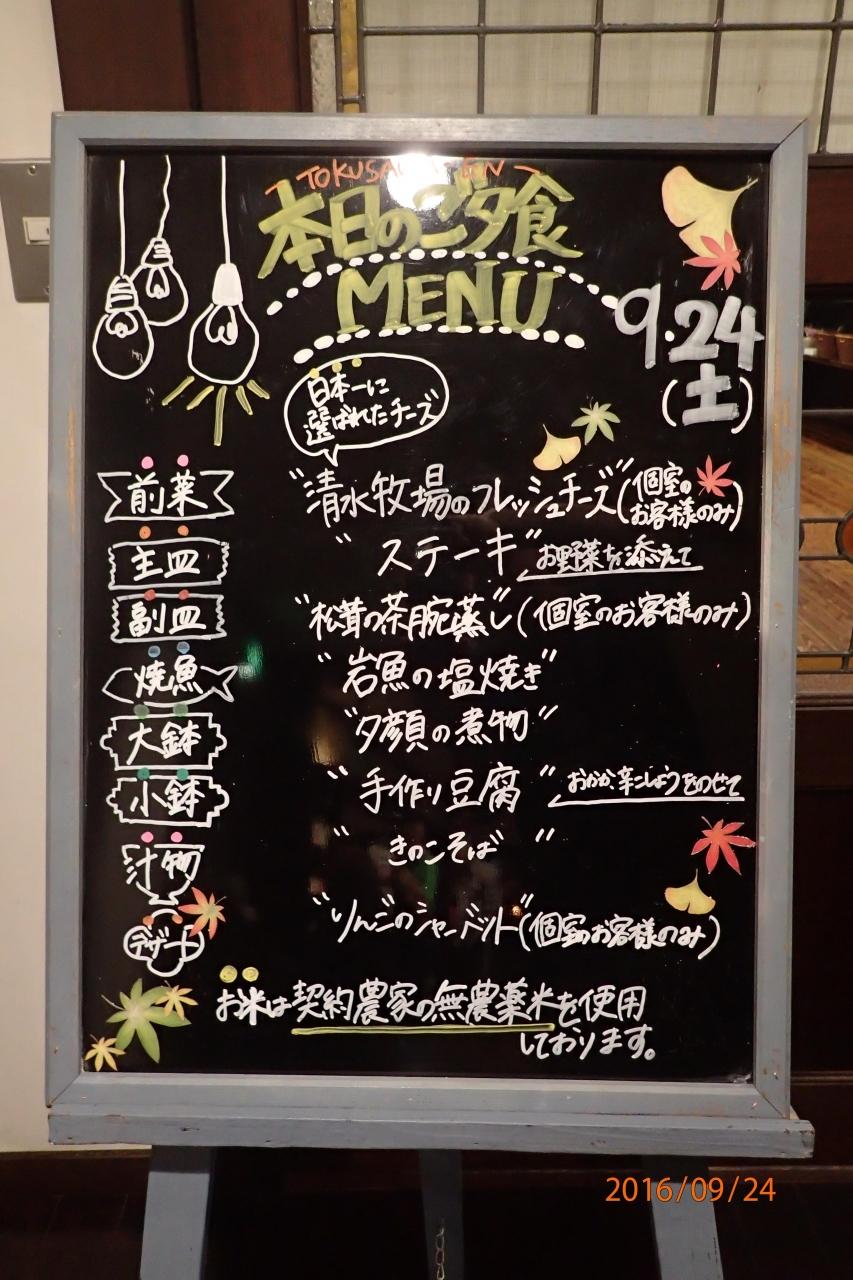 本日のご夕食
MENU
9.24
(土)
日本一に
選ばれたチーズ
前菜 "清水牧場のフレッシュチーズ" (個室のお客様のみ)
主皿 "ステーキ" お野菜を添えて
副皿 "松茸の茶腕蒸し" (個室のお客様のみ)
焼魚 "岩魚の塩焼き"
大鉢 "夕顔の煮物"
小鉢 "手作り豆腐" おかか、辛こしょうをのせて
汁物 "きのこそば"
デザート "りんごのシャーベット" (個室のお客様のみ)
お米は契約農家の無農薬米を使用
しております。
2016/09/24